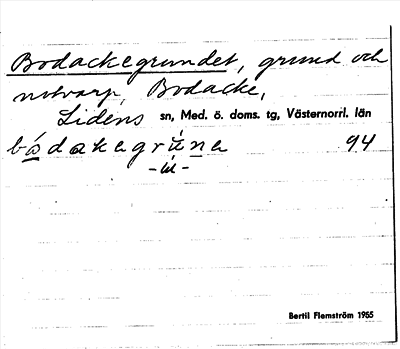 Bodackegrundet, grund och
notvarp, Bodacke,
Lidens sn, Med. ö. doms. tg, Västernorrl. län
bo̱dakegru̱ṉe 94
-u̱-
Bertil Flemström 1955